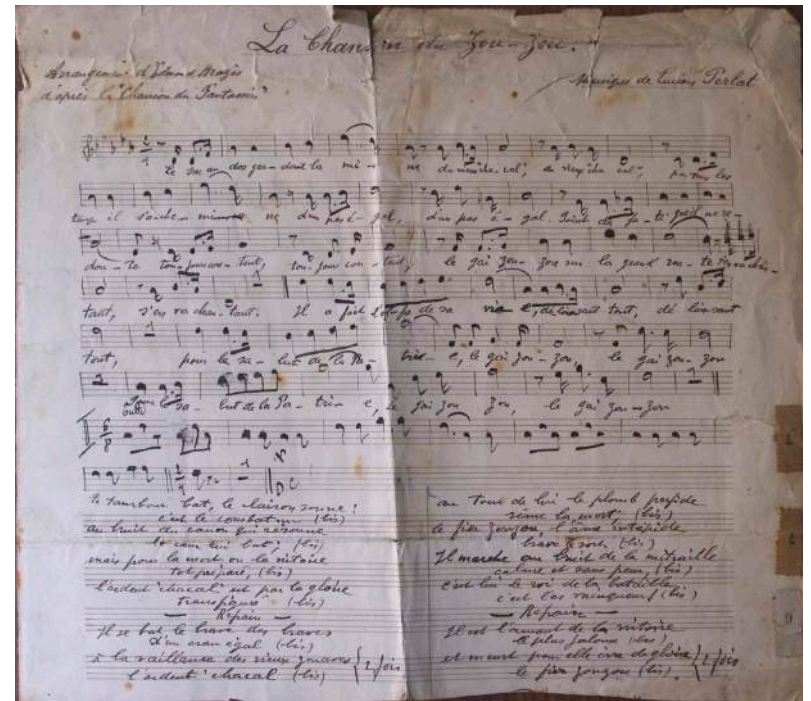 La Chanson du Zou-Zou.
Arrangement d'Edmond
d'après la "Chanson du Fantassin"
Musique de Lucien Perlat
le sac au dos gar-dant la mi- ne du maréchal, du vieux cha cal, par tous les
temps il s'ache- mine d'un pas é-gal, d'un pas é-gal. Point de fa-ti-gue il ne re-
dou-te toujours con-tent, tou-jours con-tent, le gai zou-zou sur la grand rou-te s'en va chan-
tant, s'en va chan-tant. Il a fait de sa vi e, dé laissant tout, dé laissant
tout, pour le sa-lut de la Pa- tri- e, le gai zou-zou, le gai zou-zou
Pour le sa- lut de la Pa- tri- e, le gai zou zou, le gai zou-zou
D C
le tambour bat, le clairon sonne!
c'est le combat (bis)
au bruit du canon qui résonne
le cœur lui bat; (bis)
mais pour la mort ou la victoire
tot préparé, (bis)
l'ardent "chacal" est par la gloire
transfiguré (bis)
Refrain
Il se bat le brave des braves
D'un cran égal (bis)
à la vaillance des vieux zouaves
l'ardent "chacal" (bis)
2 fois
au tour de lui le plomb perfide
sème la mort; (bis)
le fier zouzou l'âme intrépide
brave le sort, (bis)
Il marche au bruit de la mitraille
calme et sans peur, (bis)
c'est lui le roi de la bataille
c'est l'as vainqueur! (bis)
Refrain
Il est l'amant de la victoire
le plus jaloux (bis)
et meurt pour elle ivre de gloire
le fier zouzou (bis).
2 fois